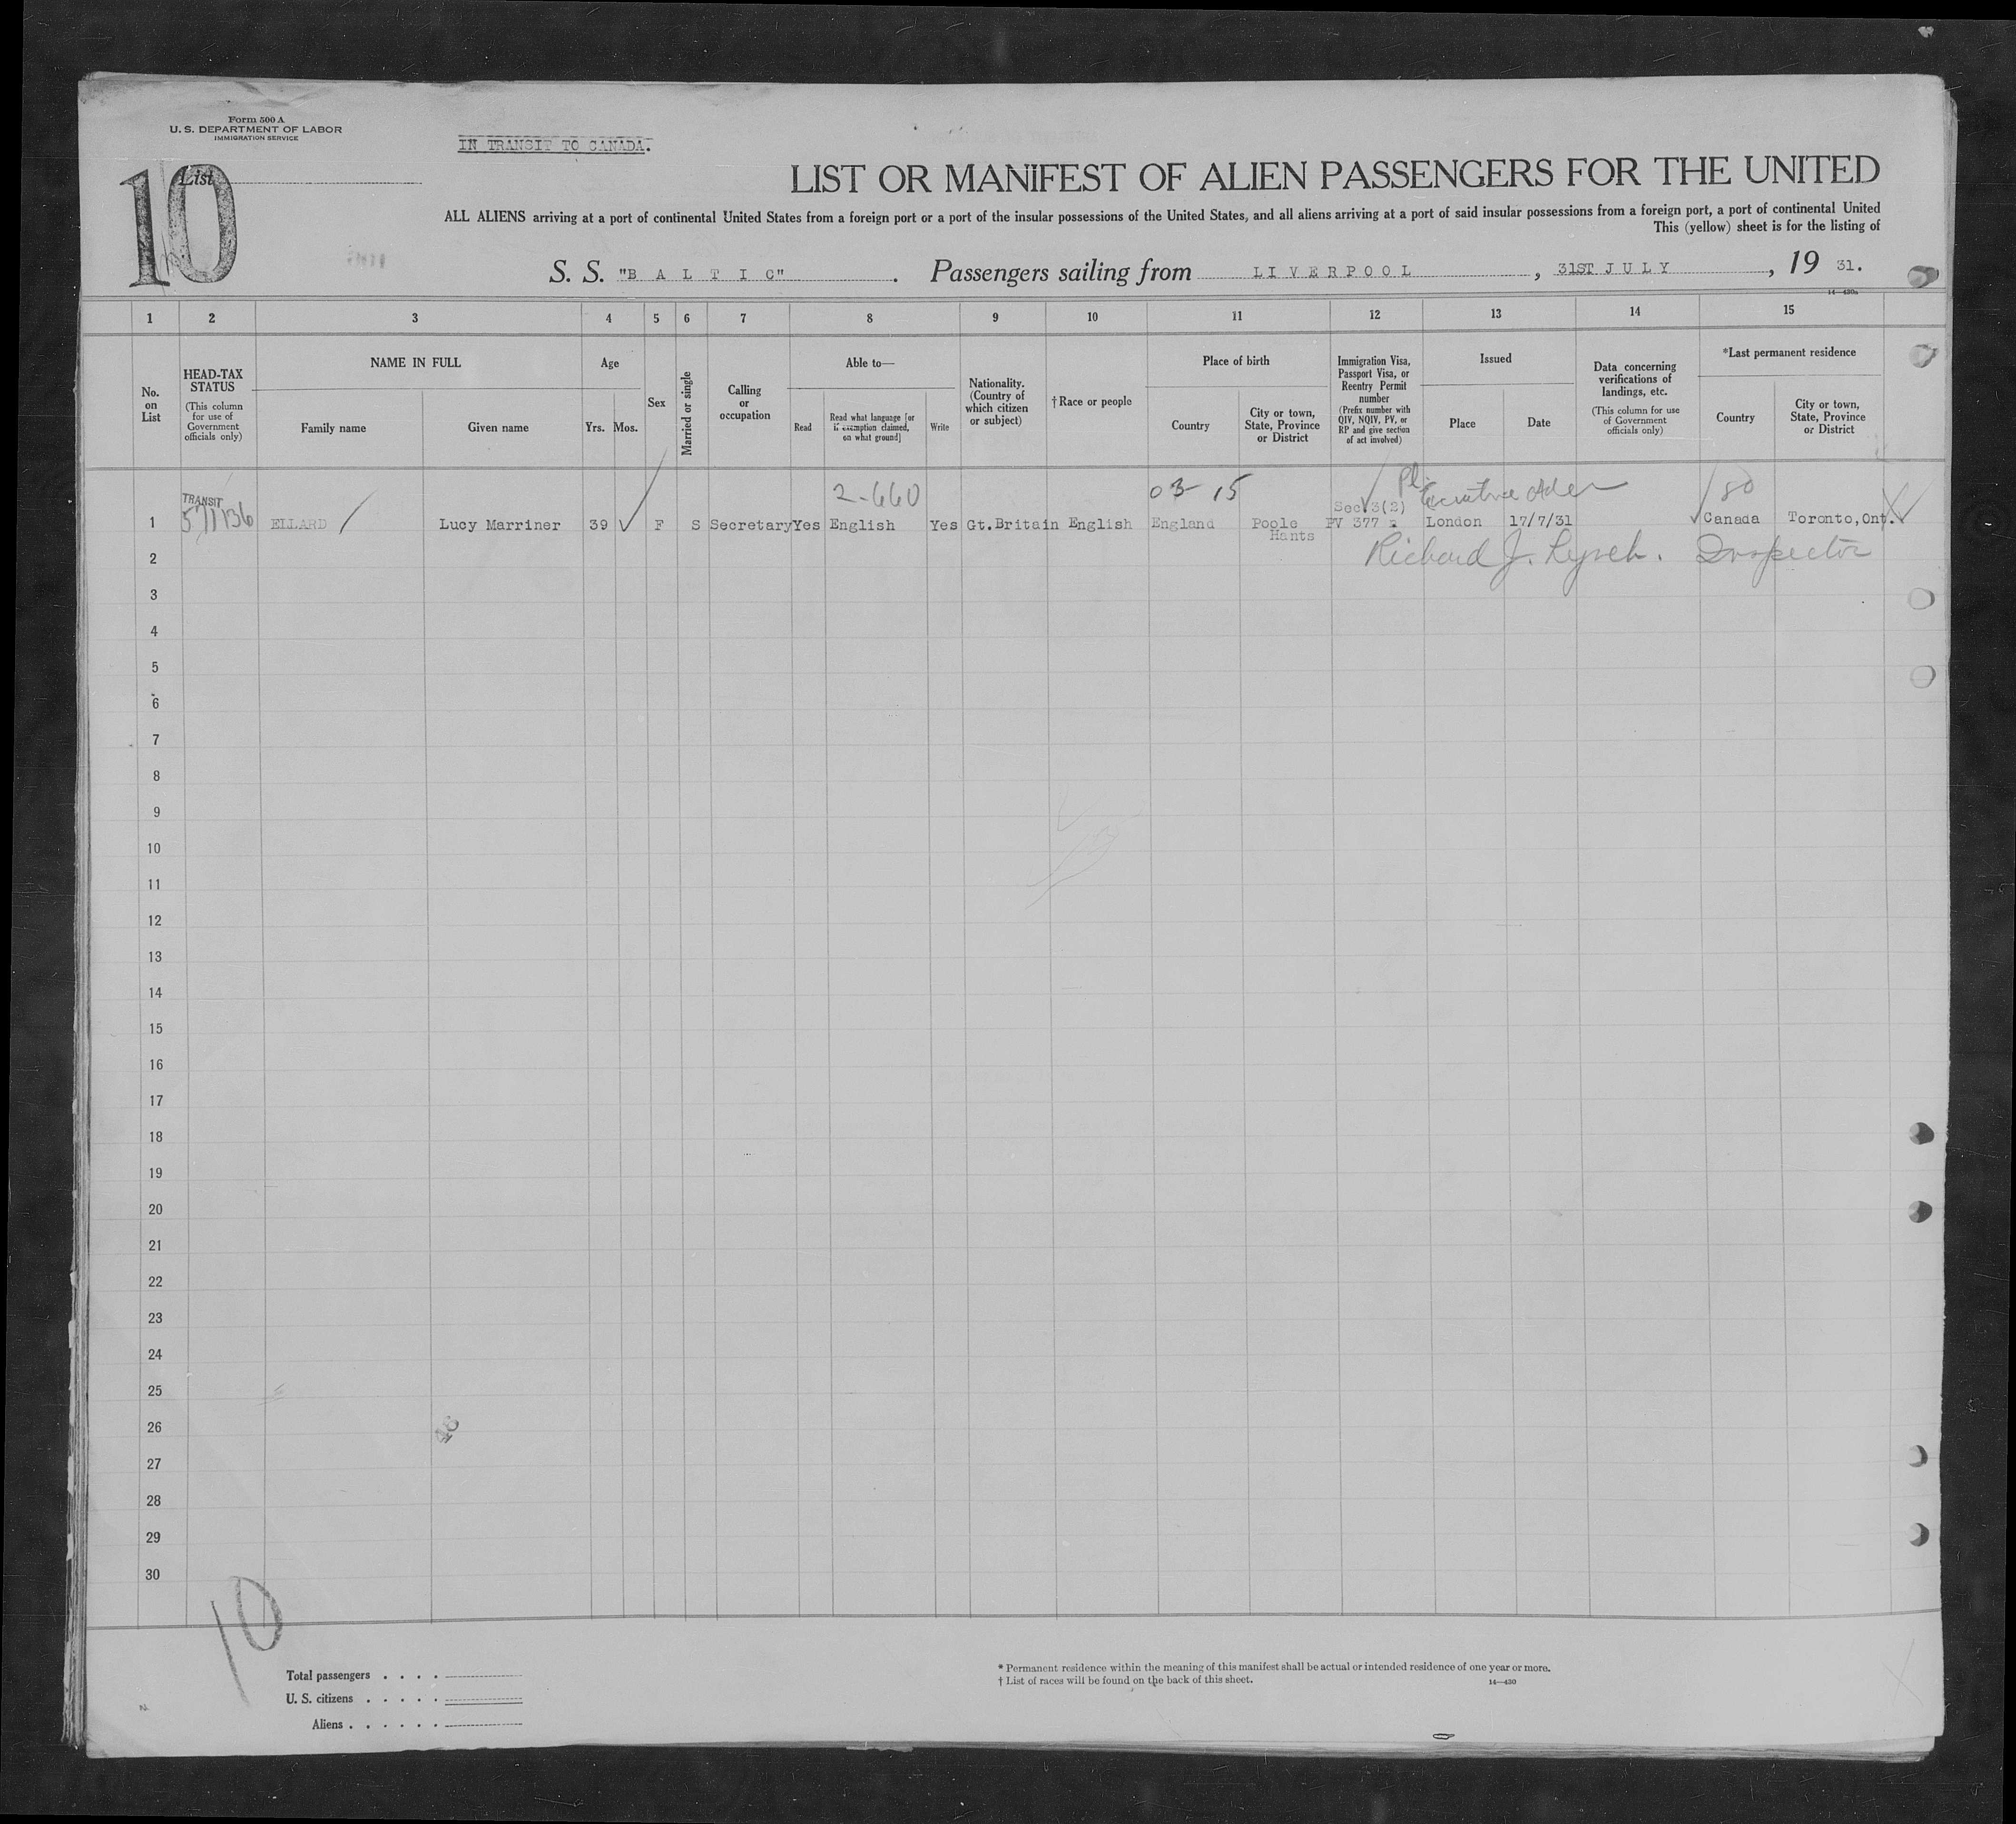 Form 500 A
U. S. DEPARTMENT OF LABOR
IMMIGRATION SERVICE
IN TRANSIT TO CANADA.
List
10
LIST OR MANIFEST OF ALIEN PASSENGERS FOR THE UNITED
ALL ALIENS arriving at a port of continental United States from a foreign port or a port of the insular possessions of the United States, and all aliens arriving at a port of said insular possessions from a foreign port, a port of continental United
This (yellow) sheet is for the listing of
S. S. "B A L T I C". Passengers sailing from L I V E R P O O L , 31ST J U L Y , 19 31.
1 2 3 4 5 6 7 8 9 10 11 12 13 14 15
No. on List
HEAD-TAX STATUS (This column for use of Government officials only)
NAME IN FULL
Family name
Given name
Age
Yrs. Mos.
Sex
Married or single
Calling or occupation
Able to—
Read
Read what language [or if exemption claimed, on what ground]
Write
Nationality. (Country of which citizen or subject)
†Race or people
Place of birth
Country
City or town, State, Province or District
Immigration Visa, Passport Visa, or Reentry Permit number (Prefix number with QIV, NQIV, PV, or RP and give section of act involved)
Issued
Place
Date
Data concerning verifications of landings, etc. (This column for use of Government officials only)
*Last permanent residence
Country
City or town, State, Province or District
TRANSIT 2-660 03-15 Sec 3(2) 180
1 ELLARD Lucy Marriner 39 F S Secretary Yes English Yes Gt.Britain English England Poole PV 377 London 17/7/31 Canada Toronto, Ont.
Hants
2 Richard J. Lynch. Inspector
3
4
5
6
7
8
9
10
11
12
13
14
15
16
17
18
19
20
21
22
23
24
25
26
27
28
29
30
10
Total passengers . . . .
U. S. citizens . . . . .
Aliens . . . . . .
* Permanent residence within the meaning of this manifest shall be actual or intended residence of one year or more.
† List of races will be found on the back of this sheet.
14—430